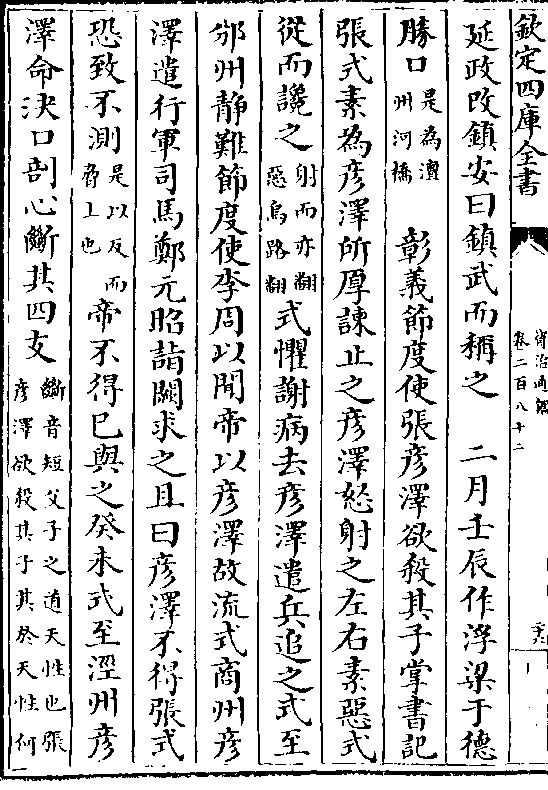 欽定四庫全書
資治通鑑
卷二百八十二
延政改鎮安曰鎮武而稱之 二月壬辰作浮梁于德
勝口是為澶州河橋 彰義節度使張彥澤欲殺其子掌書記
張式素為彥澤所厚諫止之彥澤怒射之左右素惡式
從而讒之射而亦翻惡烏路翻式懼謝病去彥澤遣兵追之式至
邠州静難節度使李周以聞帝以彥澤故流式商州彥
澤遣行軍司馬鄭元昭詣闕求之且曰彥澤不得張式
恐致不測是以反而脅上也帝不得已與之癸未式至涇州彥
澤命決口剖心斷其四支斷音短父子之道天性也張彥澤欲殺其子其於天性何